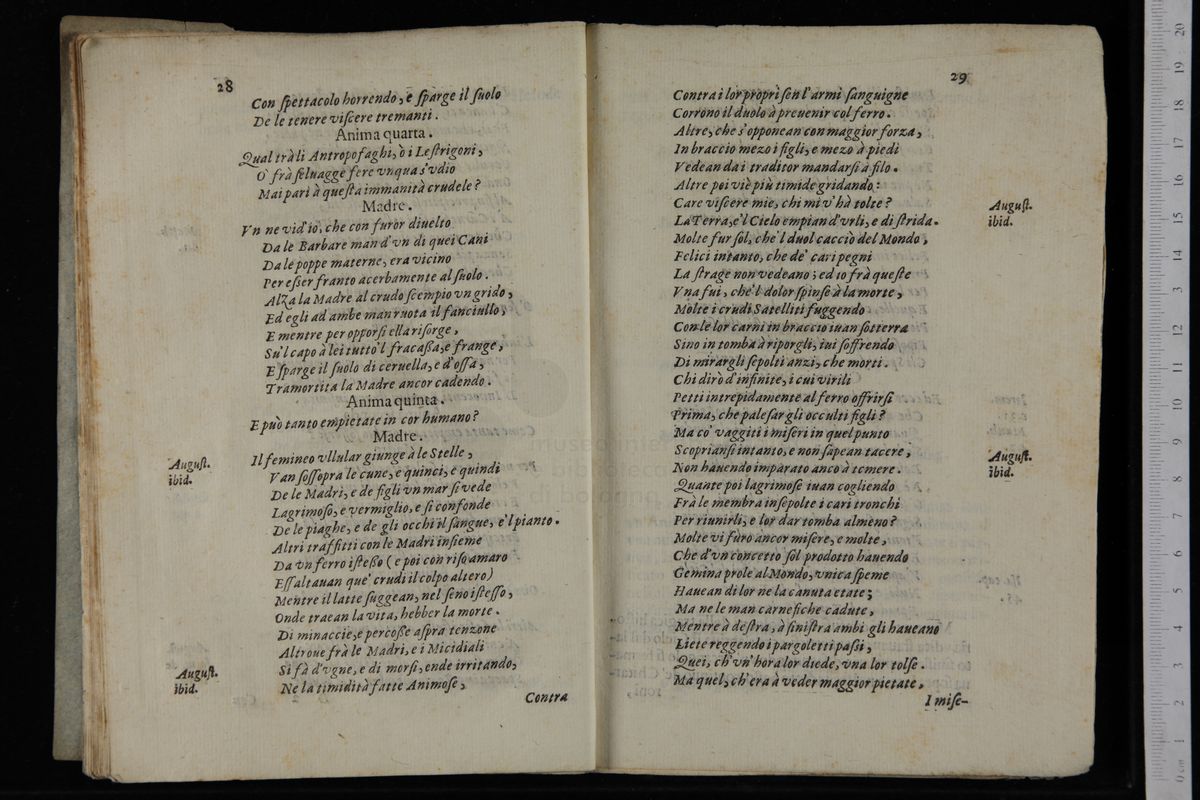 28
Con ſpettacolo horrendo, e ſparge il ſuolo
De le tenere viſcere tremanti.
Anima quarta.
Qual trà li Antropofaghi, ò i Leſtrigoni,
O' frà ſeluagge fere vnqua s'vdio
Mai pari à queſta immanità crudele?
Madre.
Vn ne vid'io, che con furor diuelto
Da le Barbare man d'vn di quei Cani
Da le poppe materne, era vicino
Per eſſer franto acerbamente al ſuolo.
Alza la Madre al crudo ſcempio vn grido,
Ed egli ad ambe man ruota il fanciullo,
E mentre per opporſi ella riſorge,
Su'l capo à lei tutto'l fracaßa, e frange,
E ſparge il ſuolo di ceruella, e d'oſſa,
Tramortita la Madre ancor cadendo.
Anima quinta.
E può tanto empietate in cor humano?
Madre.
Il femineo vllular giunge à le Stelle,
Auguſt.
ibid.
Van ſoſſopra le cune, e quinci, e quindi
De le Madri, e de figli vn mar ſi vede
Lagrimoſo, e vermiglio, e ſi confonde
De le piaghe, e de gli occhi il ſangue, e'l pianto.
Altri traffitti con le Madri inſieme
Da vn ferro iſteßo (e poi con riſo amaro
Eſſaltauan que' crudi il colpo altero)
Mentre il latte ſuggean, nel ſeno iſteſſo,
Onde traean la vita, hebber la morte.
Di minaccie, e percoße aſpra tenzone
Altroue frà le Madri, e i Micidiali
Si fà d'vgne, e di morſi, onde irritando,
Auguſt.
ibid.
Ne la timidità fatte Animoſe,
Contra
29
Contra i lor proprì ſen l'armi ſanguigne
Corrono il duolo à preuenir col ferro.
Altre, che s'opponean con maggior forza,
In braccio mezo i figli, e mezo à piedi
Vedean da i traditor mandarſi à filo.
Altre poi viè più timide gridando:
Care viſcere mie, chi mi v'hà tolte?
Auguſt.
ibid.
La Terra, e'l Cielo empian d'vrli, e di ſtrida.
Molte fur ſol, che'l duol cacciò del Mondo,
Felici intanto, che de' cari pegni
La ſtrage non vedeano; ed io frà queſte
Vna fui, che'l dolor ſpinſe à la morte,
Molte i crudi Satelliti fuggendo
Con le lor carni in braccio iuan ſotterra
Sino in tomba à riporgli, iui ſoffrendo
Di mirargli ſepolti anzi, che morti.
Chi dirò d'infinite, i cui virili
Petti intrepidamente al ferro offrirſi
Prima, che paleſar gli occulti figli?
Ma co' vaggiti i miſeri in quel punto
Scoprianſi intanto, e non ſapean tacere,
Auguſt.
ibid.
Non hauendo imparato anco à temere.
Quante poi lagrimoſe iuan cogliendo
Frà le membra inſepolte i cari tronchi
Per riunirli, e lor dar tomba almeno?
Molte vi furo ancor miſere, e molte,
Che d'vn concetto ſol prodotto hauendo
Gemina prole al Mondo, vnica ſpeme
Hauean di lor ne la canuta etate;
Ma ne le man carnefiche cadute,
Mentre à deſtra, à ſiniſtra ambi gli haueano
Liete reggendo i pargoletti paſſi,
Quei, ch'vn'hora lor diede, vna lor tolſe.
Ma quel, ch'era à veder maggior pietate,
I miſe-